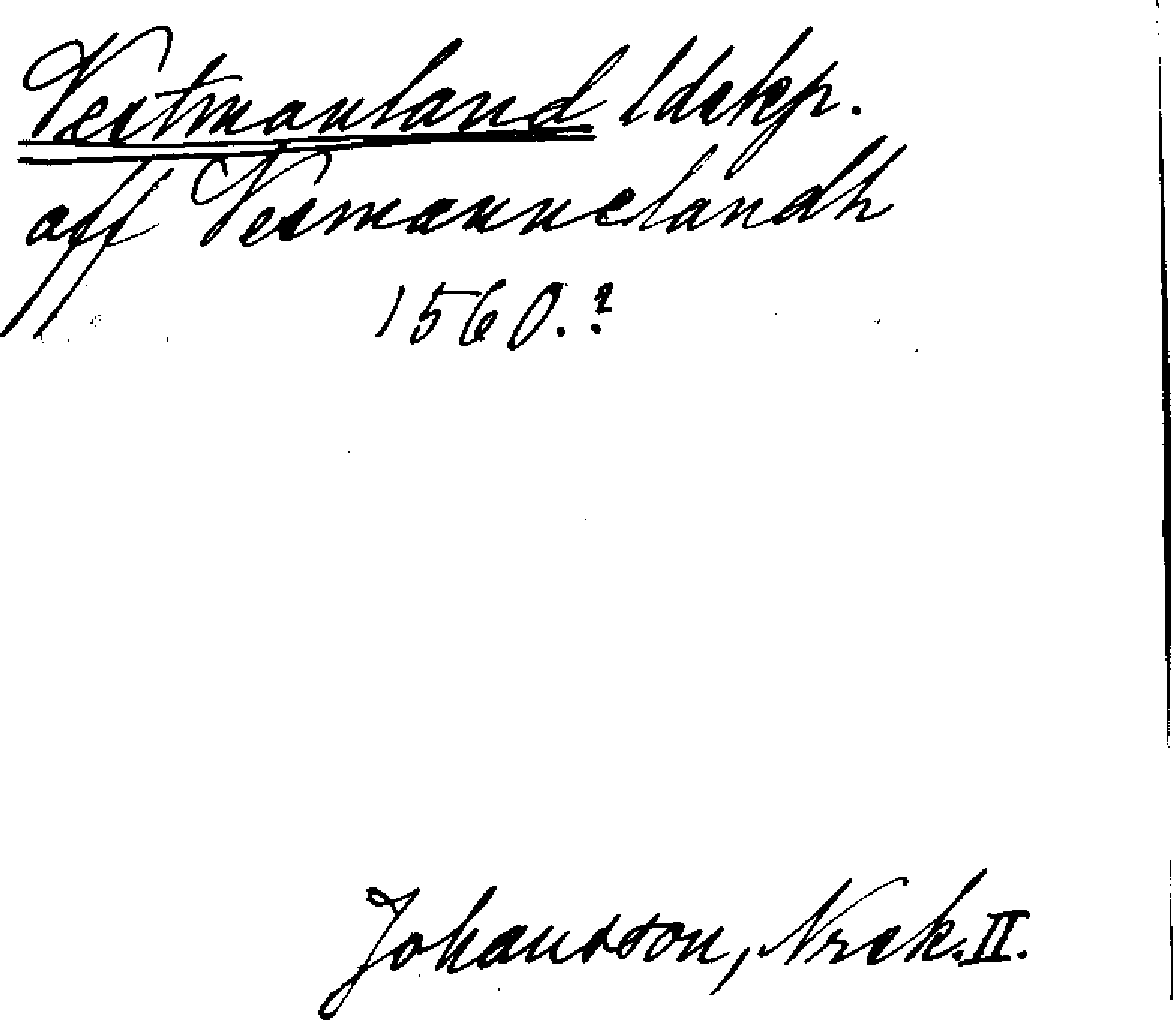 Vestmanland ldskp.
aff Vesmannelandh
1560.?
Johansson, Nrek. II.